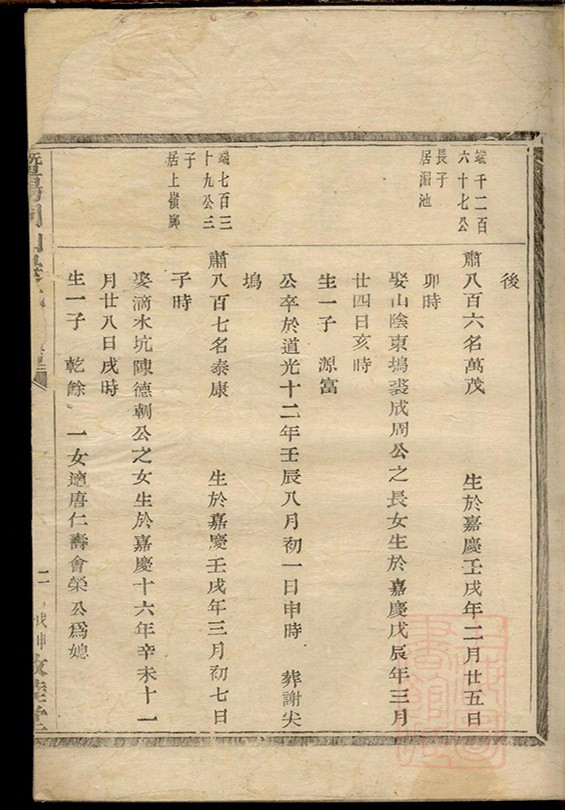 後
端千二百
六十七公
長子
居湄池
肅八百六名萬茂 生於嘉慶壬戌年二月廿五日
卯時
娶山陰東塢裘成周公之長女生於嘉慶戊辰年三月
廿四日亥時
生一子 源富
公卒於道光十二年壬辰八月初一日申時 葬謝尖
塢
端七百三
十九公三
子
居上嶺腳
肅八百七名泰康 生於嘉慶壬戌年三月初七日
子時
娶滴水坑陳德朝公之女生於嘉慶十六年辛未十一
月廿八日戌時
生一子 乾餘 一女適唐仁壽會榮公為媳
二
戊申